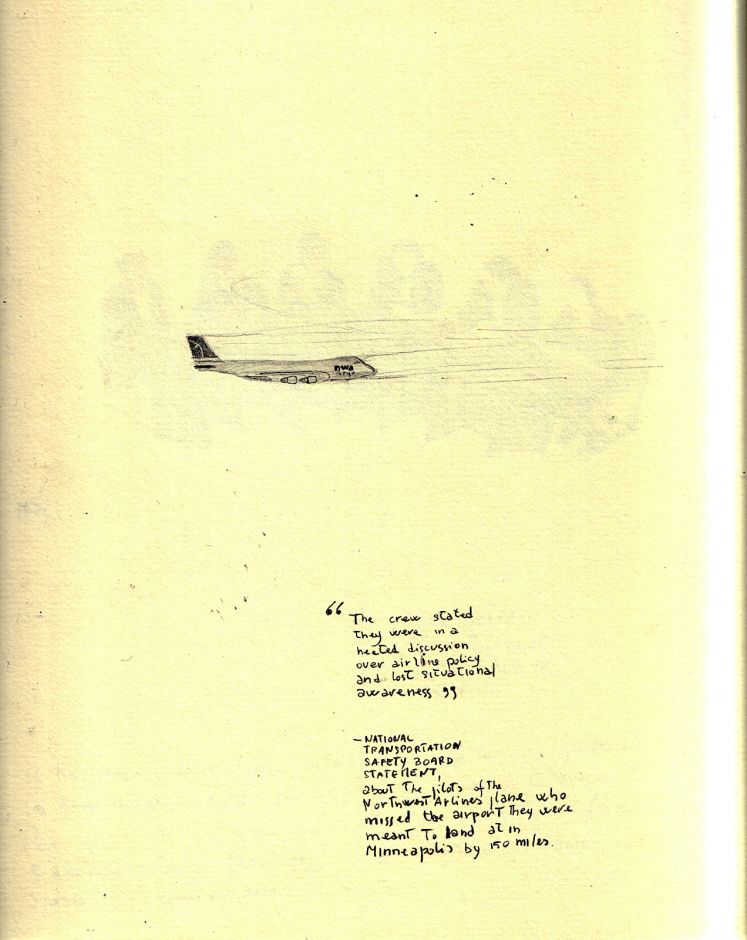 nwa
cargo
“ The crew stated
they were in a
heated discussion
over airline policy
and lost situational
awareness ”
– NATIONAL
TRANSPORTATION
SAFETY BOARD
STATEMENT,
about The pilots of the
NorThwest Airlines plane who
missed the airport They were
meant To land at in
Minneapolis by 150 miles.